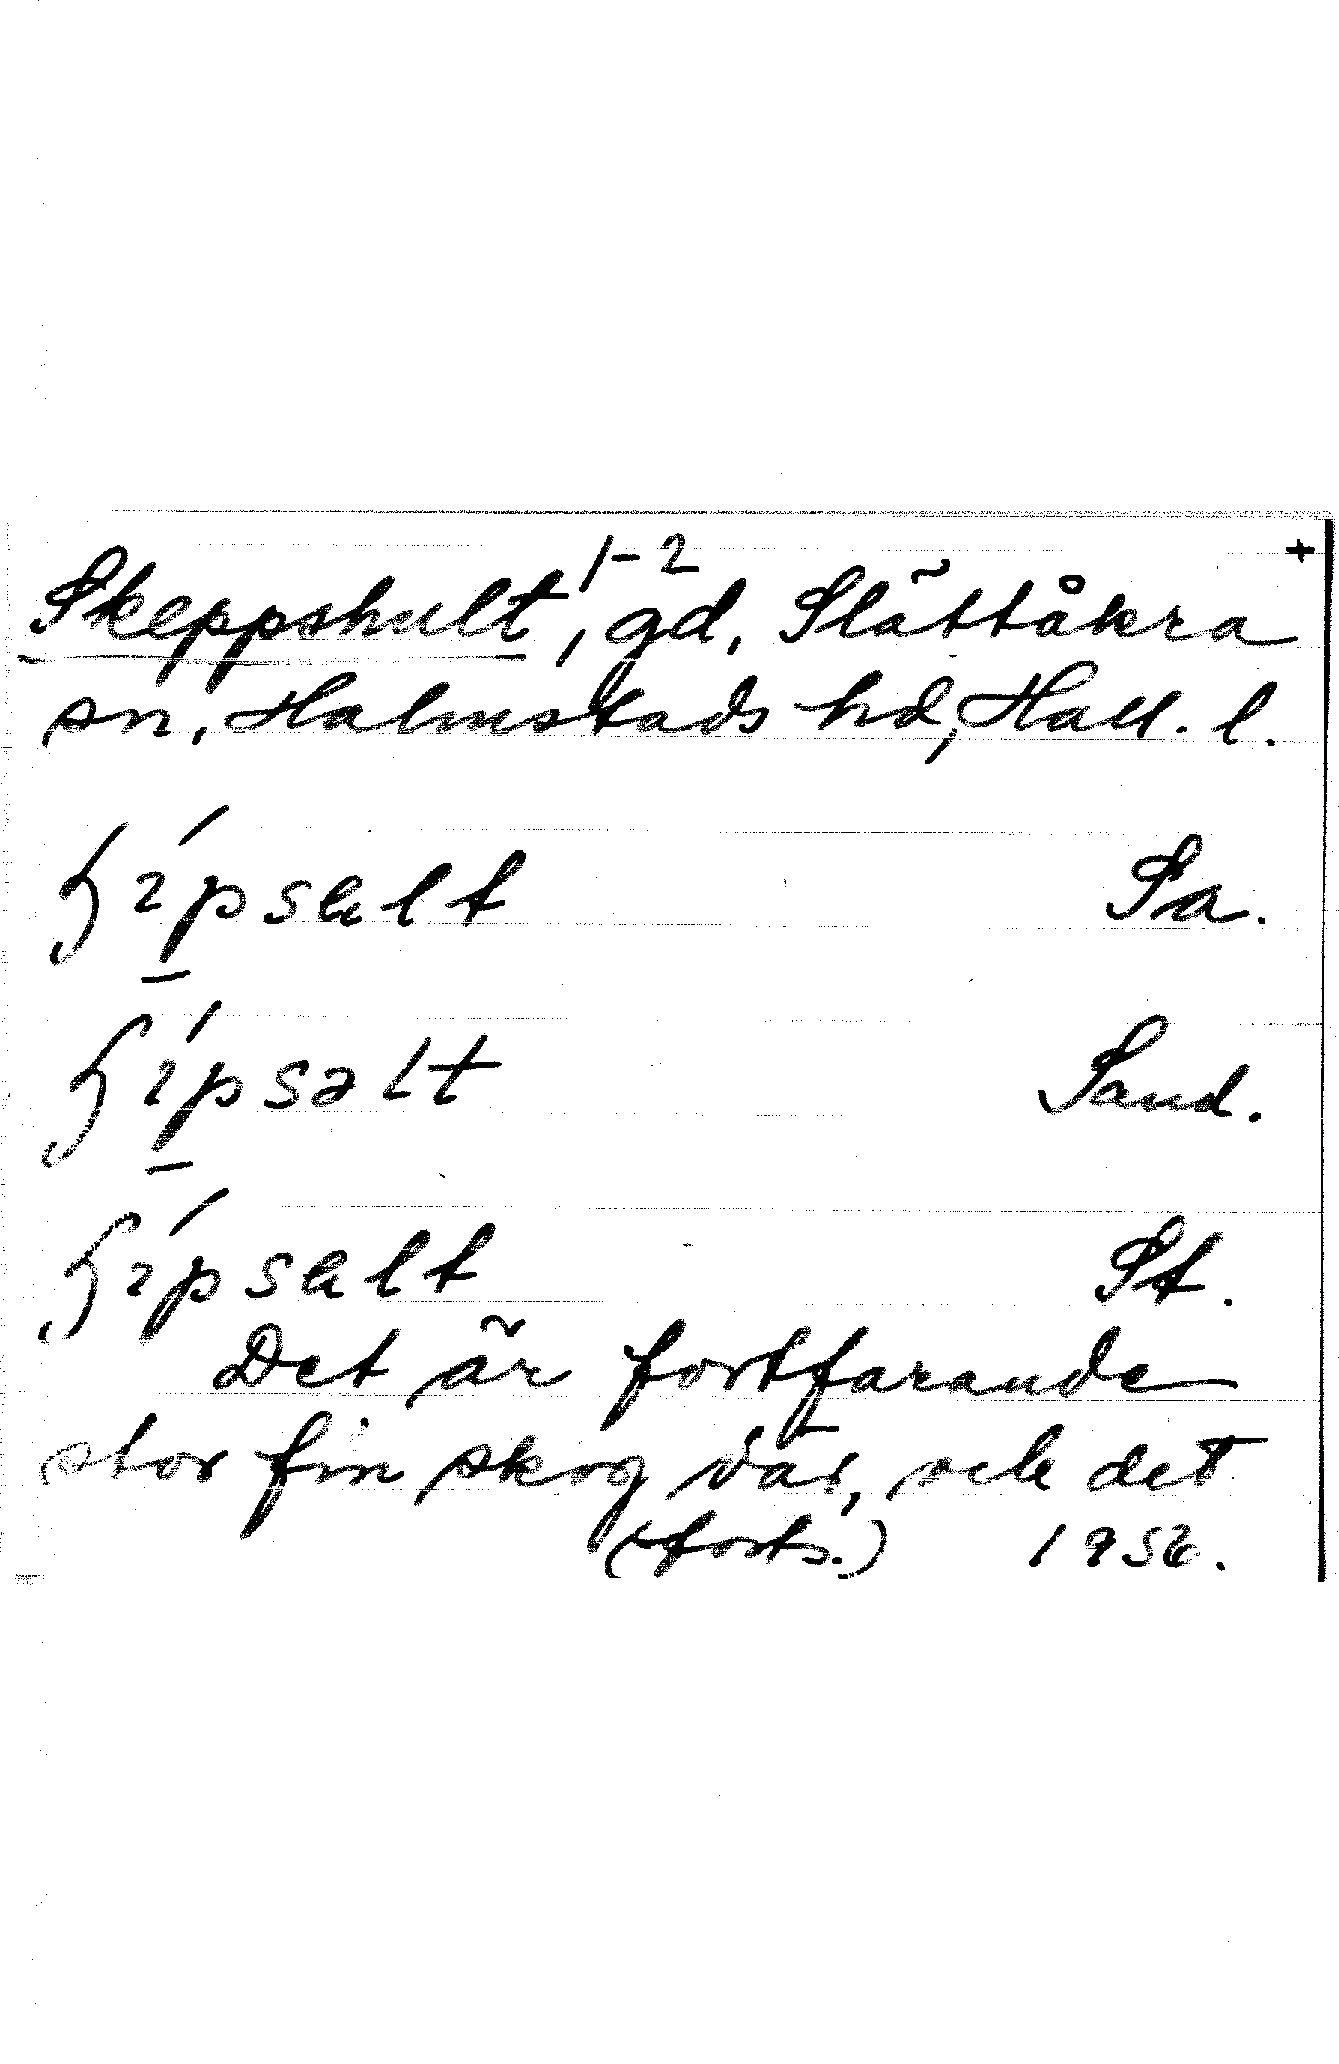 +
Skeppshult 1-2, gd, Slättåkra
sn, Halmstads hd, Hall. l.
Sa.
Sand.
St.
Det är fortfarande
stor fin skog där, och det
(forts.) 1956.